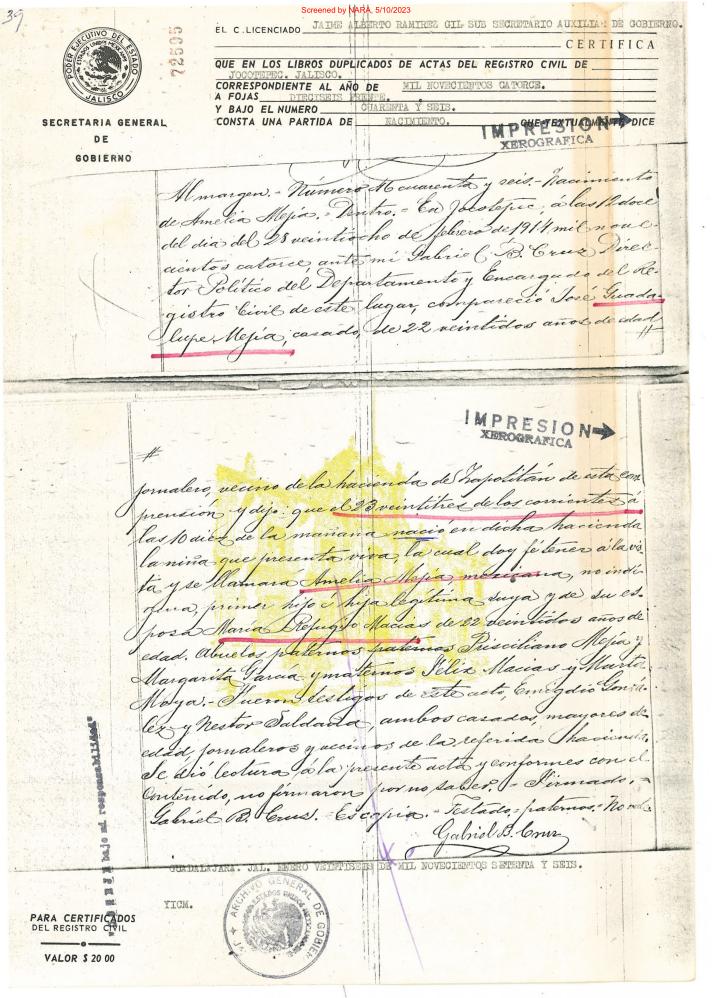 39
Screened by NARA, 5/10/2023
PODER EJECUTIVO DEL ESTADO
ESTADOS UNIDOS MEXICANOS
JALISCO
SECRETARIA GENERAL
DE
GOBIERNO
72505
EL C. LICENCIADO JAIME ALBERTO RAMIREZ GIL SUB SECRETARIO AUXILIAR DE GOBIERNO.
CERTIFICA
QUE EN LOS LIBROS DUPLICADOS DE ACTAS DEL REGISTRO CIVIL DE
JOCOTEPEC. JALISCO.
CORRESPONDIENTE AL AÑO DE MIL NOVECIENTOS CATORCE.
A FOJAS DIECISEIS FRENTE.
Y BAJO EL NUMERO CUARENTA Y SEIS.
CONSTA UNA PARTIDA DE NACIMIENTO. QUE TEXTUALMENTE DICE
IMPRESION
XEROGRAFICA
Al margen.- Número 46 cuarenta y seis.- Nacimiento
de Amelia Mejía.- Dentro.- En Jocotepec, á las 12 doce
del dia del 28 veintiocho de febrero de 1914 mil nove
cientos catorce, ante mi Gabriel B. Cruz Direc-
tor Político del Departamento y Encargado del Re-
gistro Civil de este lugar, compareció José Guada-
lupe Mejía, casado, de 22 veintidos años de edad
#
IMPRESION
XEROGRAFICA
#
jornalero, vecino de la hacienda de Zapotitán de esta com
prensión y dijo: que el 23 veintitres de los corrientes á
las 10 diez de la mañana nació en dicha hacienda
la niña que presenta viva, la cual doy fé tener á la vis
ta y se llamará Amelia Mejía, mexicana, no indí
gena, primer hijo é hija legítima suya y de su es
posa María Refugio Macias de 22 veintidos años de
edad. Abuelos paternos paternos Prisciliano Mejía y
Margarita García y maternos Félix Macias y Marta
Moya.- Fueron testigos de este acto, Emigdio Gonzá
lez y Nestor Saldaña, ambos casados, mayores de
edad, jornaleros y vecinos de la referida hacienda.
Se dió lectura á la presente acta y conformes con el
contenido, no firmaron por no saber.- Firmado.-
Gabriel B. Cruz.- Es copia.- Testado= paternos.= No vale
Gabriel B. Cruz
bajo mi responsabilidad"
GUADALAJARA. JAL. ENERO VEINTISEIS DE MIL NOVECIENTOS SETENTA Y SEIS.
YICM.
ARCHIVO GENERAL DE GOBIER
ESTADOS UNIDOS MEXICANOS
PARA CERTIFICADOS
DEL REGISTRO CIVIL
VALOR $ 20 00